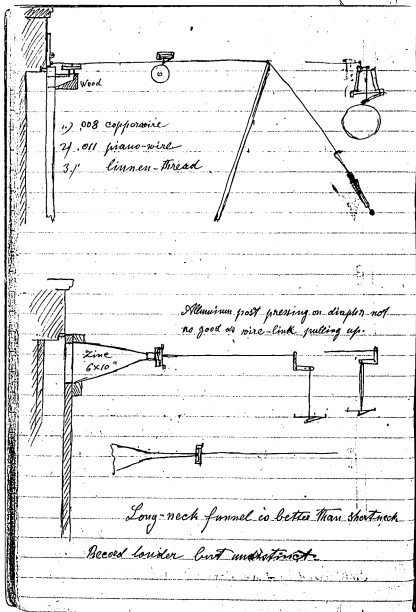 Wood
1.) .008 copperwire
2/ .011 piano-wire
3/ linnen-thread
Alluminium post pressing on diaphr. not
no good as wire-link pulling up.
Zinc
6x10"
Long-neck funnel is better than short neck
Record louder but undistinct.